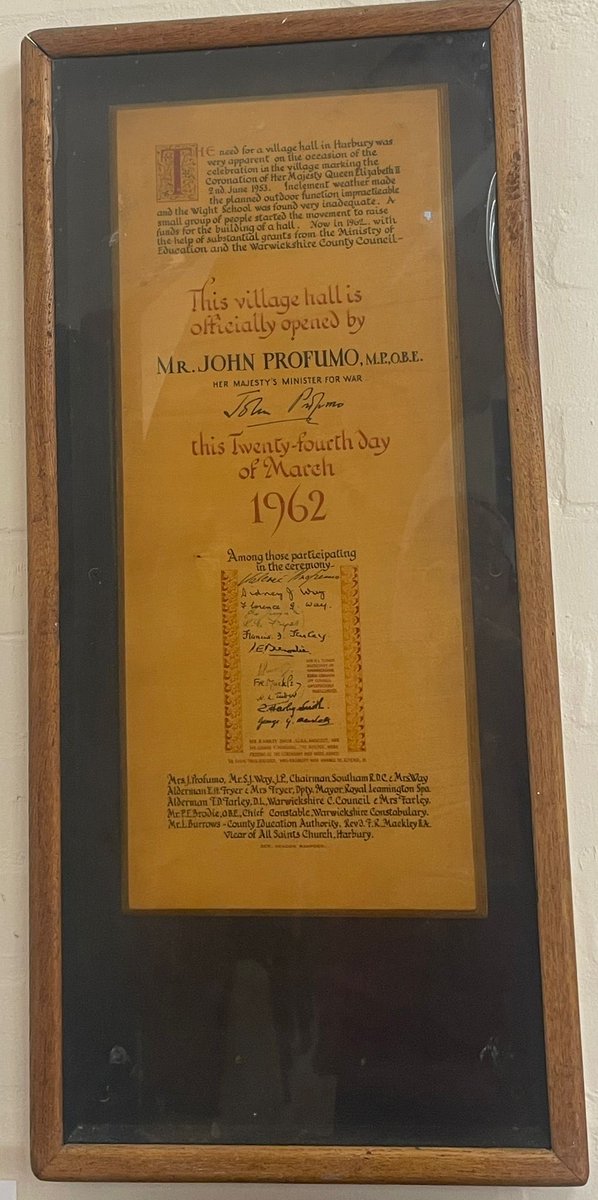 THE need for a village hall in Harbury was
very apparent on the occasion of the
celebration in the village marking the
Coronation of Her Majesty Queen Elizabeth II
2nd June 1953. Inclement weather made
the planned outdoor function impracticable
and the Wight School was found very inadequate. A
small group of people started the movement to raise
funds for the building of a hall. Now in 1962, with
the help of substantial grants from the Ministry of
Education and the Warwickshire County Council-
This village hall is
officially opened by
MR. JOHN PROFUMO, M.P., O.B.E.
HER MAJESTY'S MINISTER FOR WAR
John Profumo
this Twenty-fourth day
of March
1962
Among those participating
in the ceremony-
Profumo
Sidney J Way
Florence G. Way.
Fryer
Francis D. Farley
Brodie
F R Mackley
Smith.
George G.
Mrs J. Profumo, Mr. S.J. Way, J.P., Chairman Southam R.D.C. & Mrs Way
Alderman E.H. Fryer & Mrs Fryer, Dpty. Mayor Royal Leamington Spa.
Alderman F.D. Farley, D.L., Warwickshire C. Council & Mrs Farley.
Mr. P.E. Brodie, O.B.E., Chief Constable, Warwickshire Constabulary.
Mr. L. Burrows - County Education Authority. Revd. F.R. Mackley B.A.
Vicar of All Saints Church, Harbury.